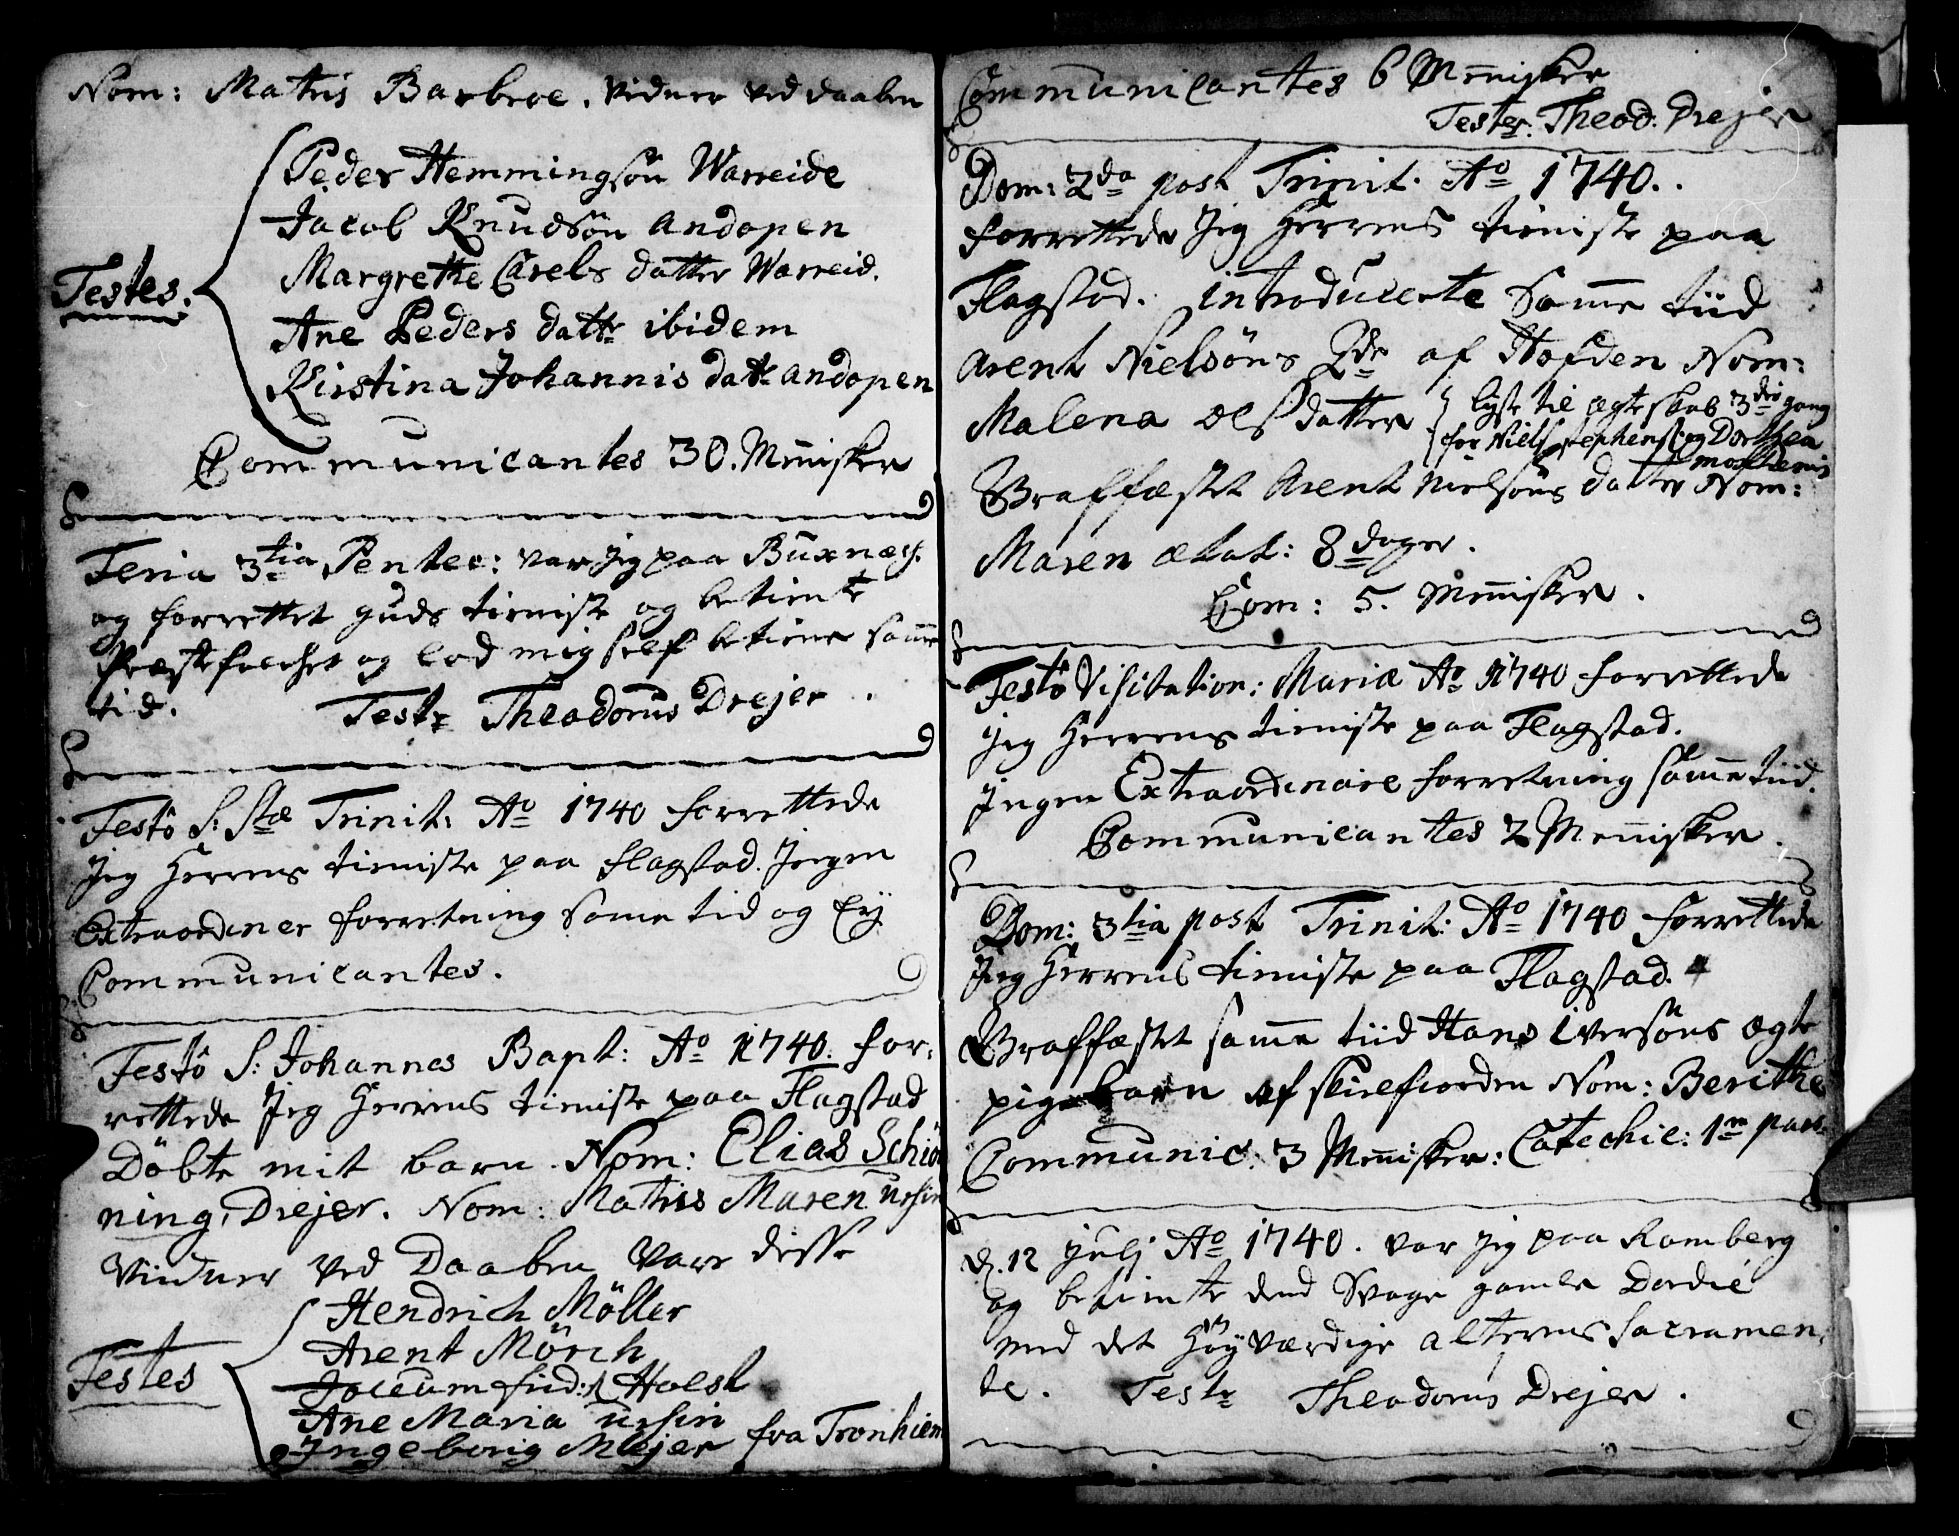 Nom: Matris Barbroe. Vidner ved daaben
Peder Hemmingsön Warreide
Jacob Knudsön Andopen
Margrethe Carels datter Warreid.
Testes.
Ane Peders datt: ibidem
Kirstina Johannis datt: andopen
Communicantes 30. Mnisker
Feria 3tia Pentec: var jeg paa Buxnæs
og forrettet Guds tieniste og betiente
Præstefolchet og lod mig self betiene same
tid. Teste Theodorus Drejer.
Festo S: Stæ Trinit: Ao 1740 forrettede
Jeg Herrens tieniste paa Flagstad. Jngen
Extraordiner forretning same tid og Ey
Communicantes.
Festo S: Johannes Bapt: Ao 1740. for:
rettede Jeg Herrens tieniste paa Flagstad
Döbte mit barn. Nom: Elias Schiö
ning, Drejer. Nom: Matris Maren Ursin
Vidner ved Daaben vare disse
Hendrich Möller
Arent Mörch
Testes
Joceum Holst
Ane Maria Ursin
Jngeborig Mejer fra Tronhiem
Communicantes 6 Mnisker
Teste: Theod. Drejer
Dom: 2da post Trinit. Ao 1740..
forrettede Jeg Herrens tieniste paa
Flagstad. introducerte Same tiid
Arent Nielsöns af Hofden Nom:
Malena Ols datter lyste til ægteskab 3die gang
for Niels Stephens: og Dorthea
Mortens
Præffæstet Arent Nielsöns datter Nom:
Maren ætat: 8 dager.
Com: 5. Mennisker.
Festo Visitation: Mariæ Ao 1740 forrettede
Jeg Herrens tieniste paa Flagstad.
Jngen Extraordinaire forretning same tiid.
Communicantes 2 Mennisker.
Dom: 3tia post Trinit: Ao 1740 forrettede
Jeg Herrens tieniste paa Flagstad.
Præffæstet same tiid Hans Iversöns ægte
pigebarn af skielfiorden Nom: Berithe
Communic: 3 Mennisker: Catechic: 1m part.
d. 12 Julj Ao 1740. var jeg paa Ramberg
og betiente dend Svage gamle Dordie
med det Höyværdige alterens Sacramen:
te. Teste Theodorus Drejer.